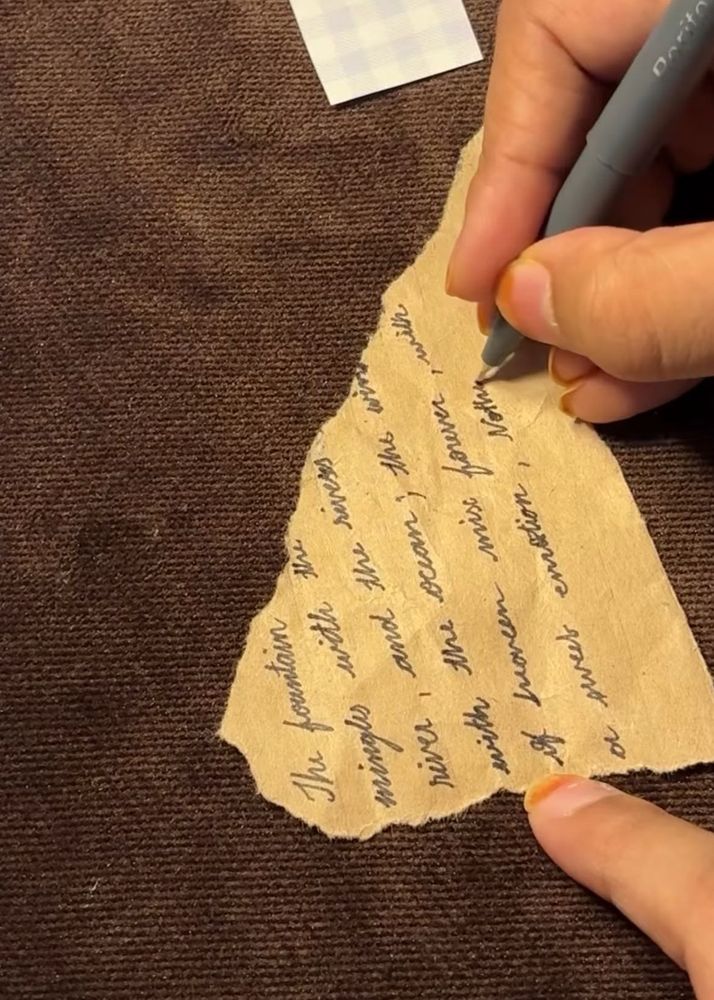 The fountain
mingles with the
river, and the rivers
with the ocean; the wins
of heaven mix forever, with
a sweet emotion, Noth